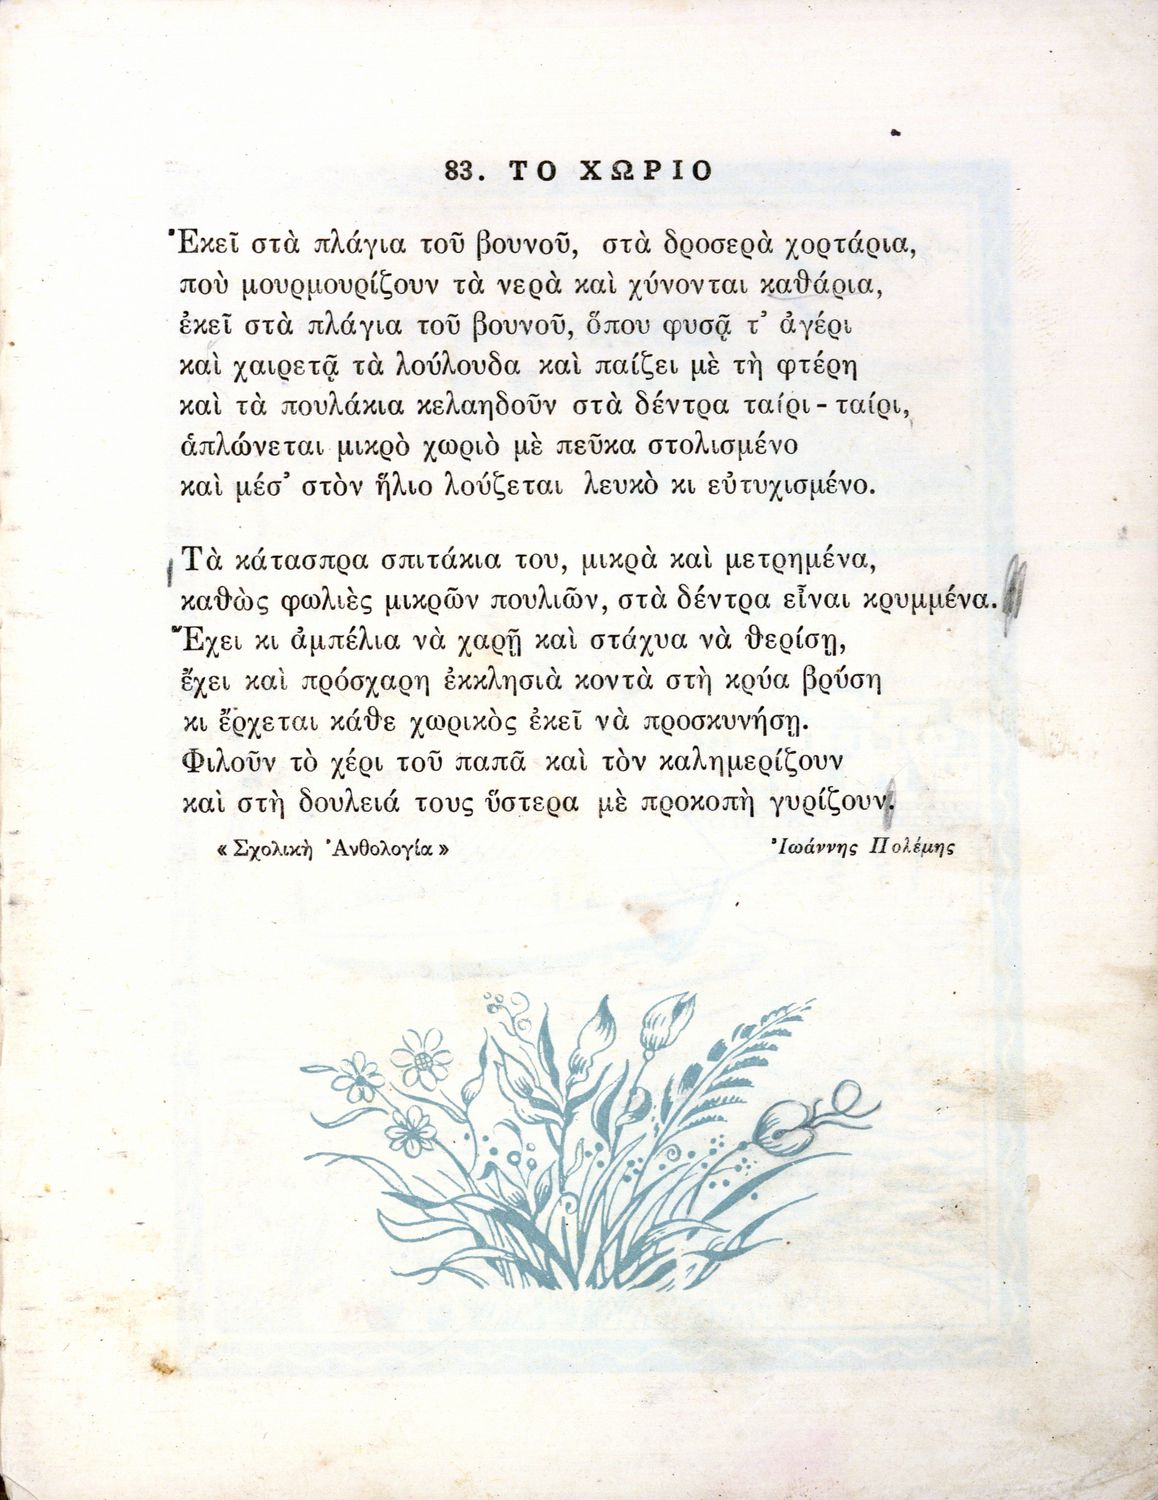 83. ΤΟ ΧΩΡΙΟ
Ἐκεῖ στὰ πλάγια τοῦ βουνοῦ, στὰ δροσερὰ χορτάρια,
ποὺ μουρμουρίζουν τὰ νερὰ καὶ χύνονται καθάρια,
ἐκεῖ στὰ πλάγια τοῦ βουνοῦ, ὅπου φυσᾷ τ' ἀγέρι
καὶ χαιρετᾷ τὰ λούλουδα καὶ παίζει μὲ τὴ φτέρη
καὶ τὰ πουλάκια κελαηδοῦν στὰ δέντρα ταίρι - ταίρι,
ἁπλώνεται μικρὸ χωριὸ μὲ πεῦκα στολισμένο
καὶ μέσ' στὸν ἥλιο λούζεται λευκὸ κι εὐτυχισμένο.
Τὰ κάτασπρα σπιτάκια του, μικρὰ καὶ μετρημένα,
καθὼς φωλιὲς μικρῶν πουλιῶν, στὰ δέντρα εἶναι κρυμμένα.
Ἔχει κι ἀμπέλια νὰ χαρῇ καὶ στάχυα νὰ θερίσῃ,
ἔχει καὶ πρόσχαρη ἐκκλησιὰ κοντὰ στὴ κρύα βρύση
κι ἔρχεται κάθε χωρικὸς ἐκεῖ νὰ προσκυνήσῃ.
Φιλοῦν τὸ χέρι τοῦ παπᾶ καὶ τὸν καλημερίζουν
καὶ στὴ δουλειά τους ὕστερα μὲ προκοπὴ γυρίζουν.
« Σχολικὴ Ἀνθολογία » Ἰωάννης Πολέμης